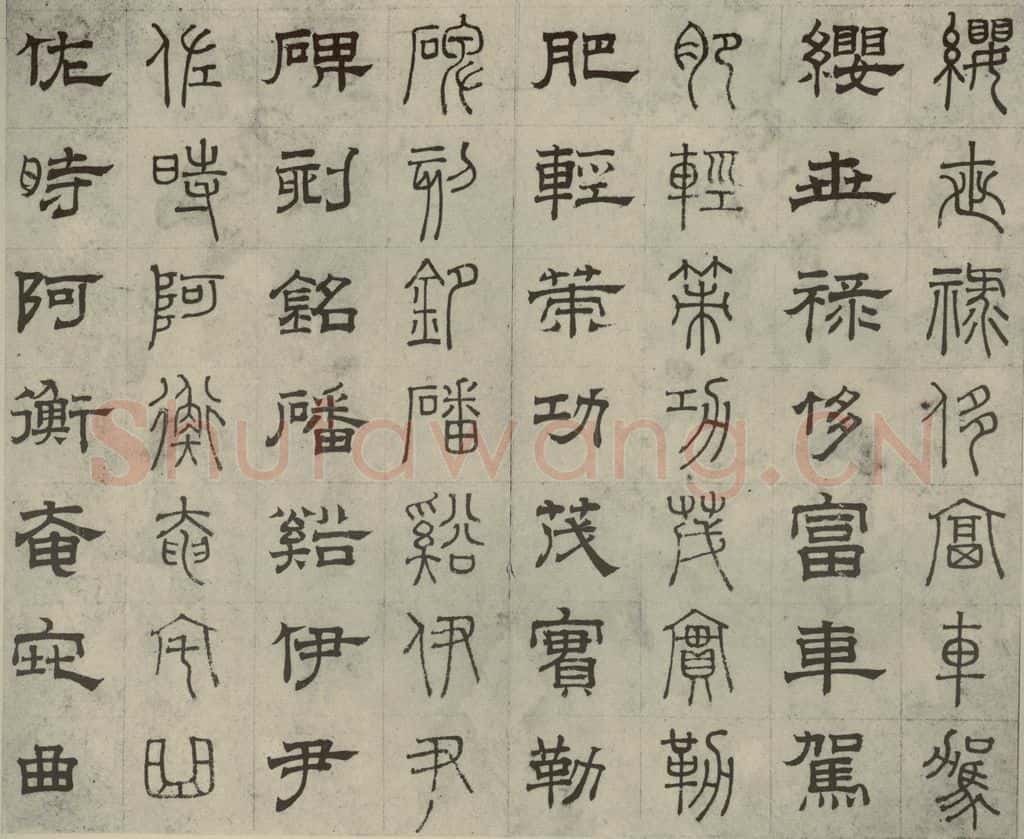 纓世祿侈富車駕
纓世祿侈富車駕
肥輕策功茂實勒
肥輕策功茂實勒
碑刻銘磻谿伊尹
碑刻銘磻谿伊尹
佐時阿衡奄宅曲
佐時阿衡奄宅曲
Shufawang.CN